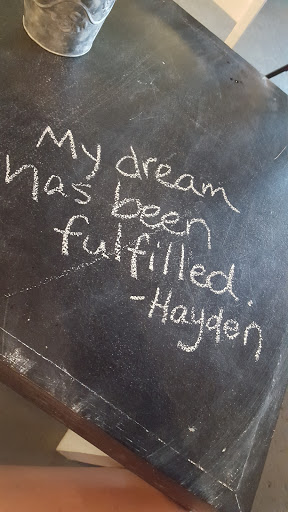 My dream
has been
fulfilled.
-Hayden